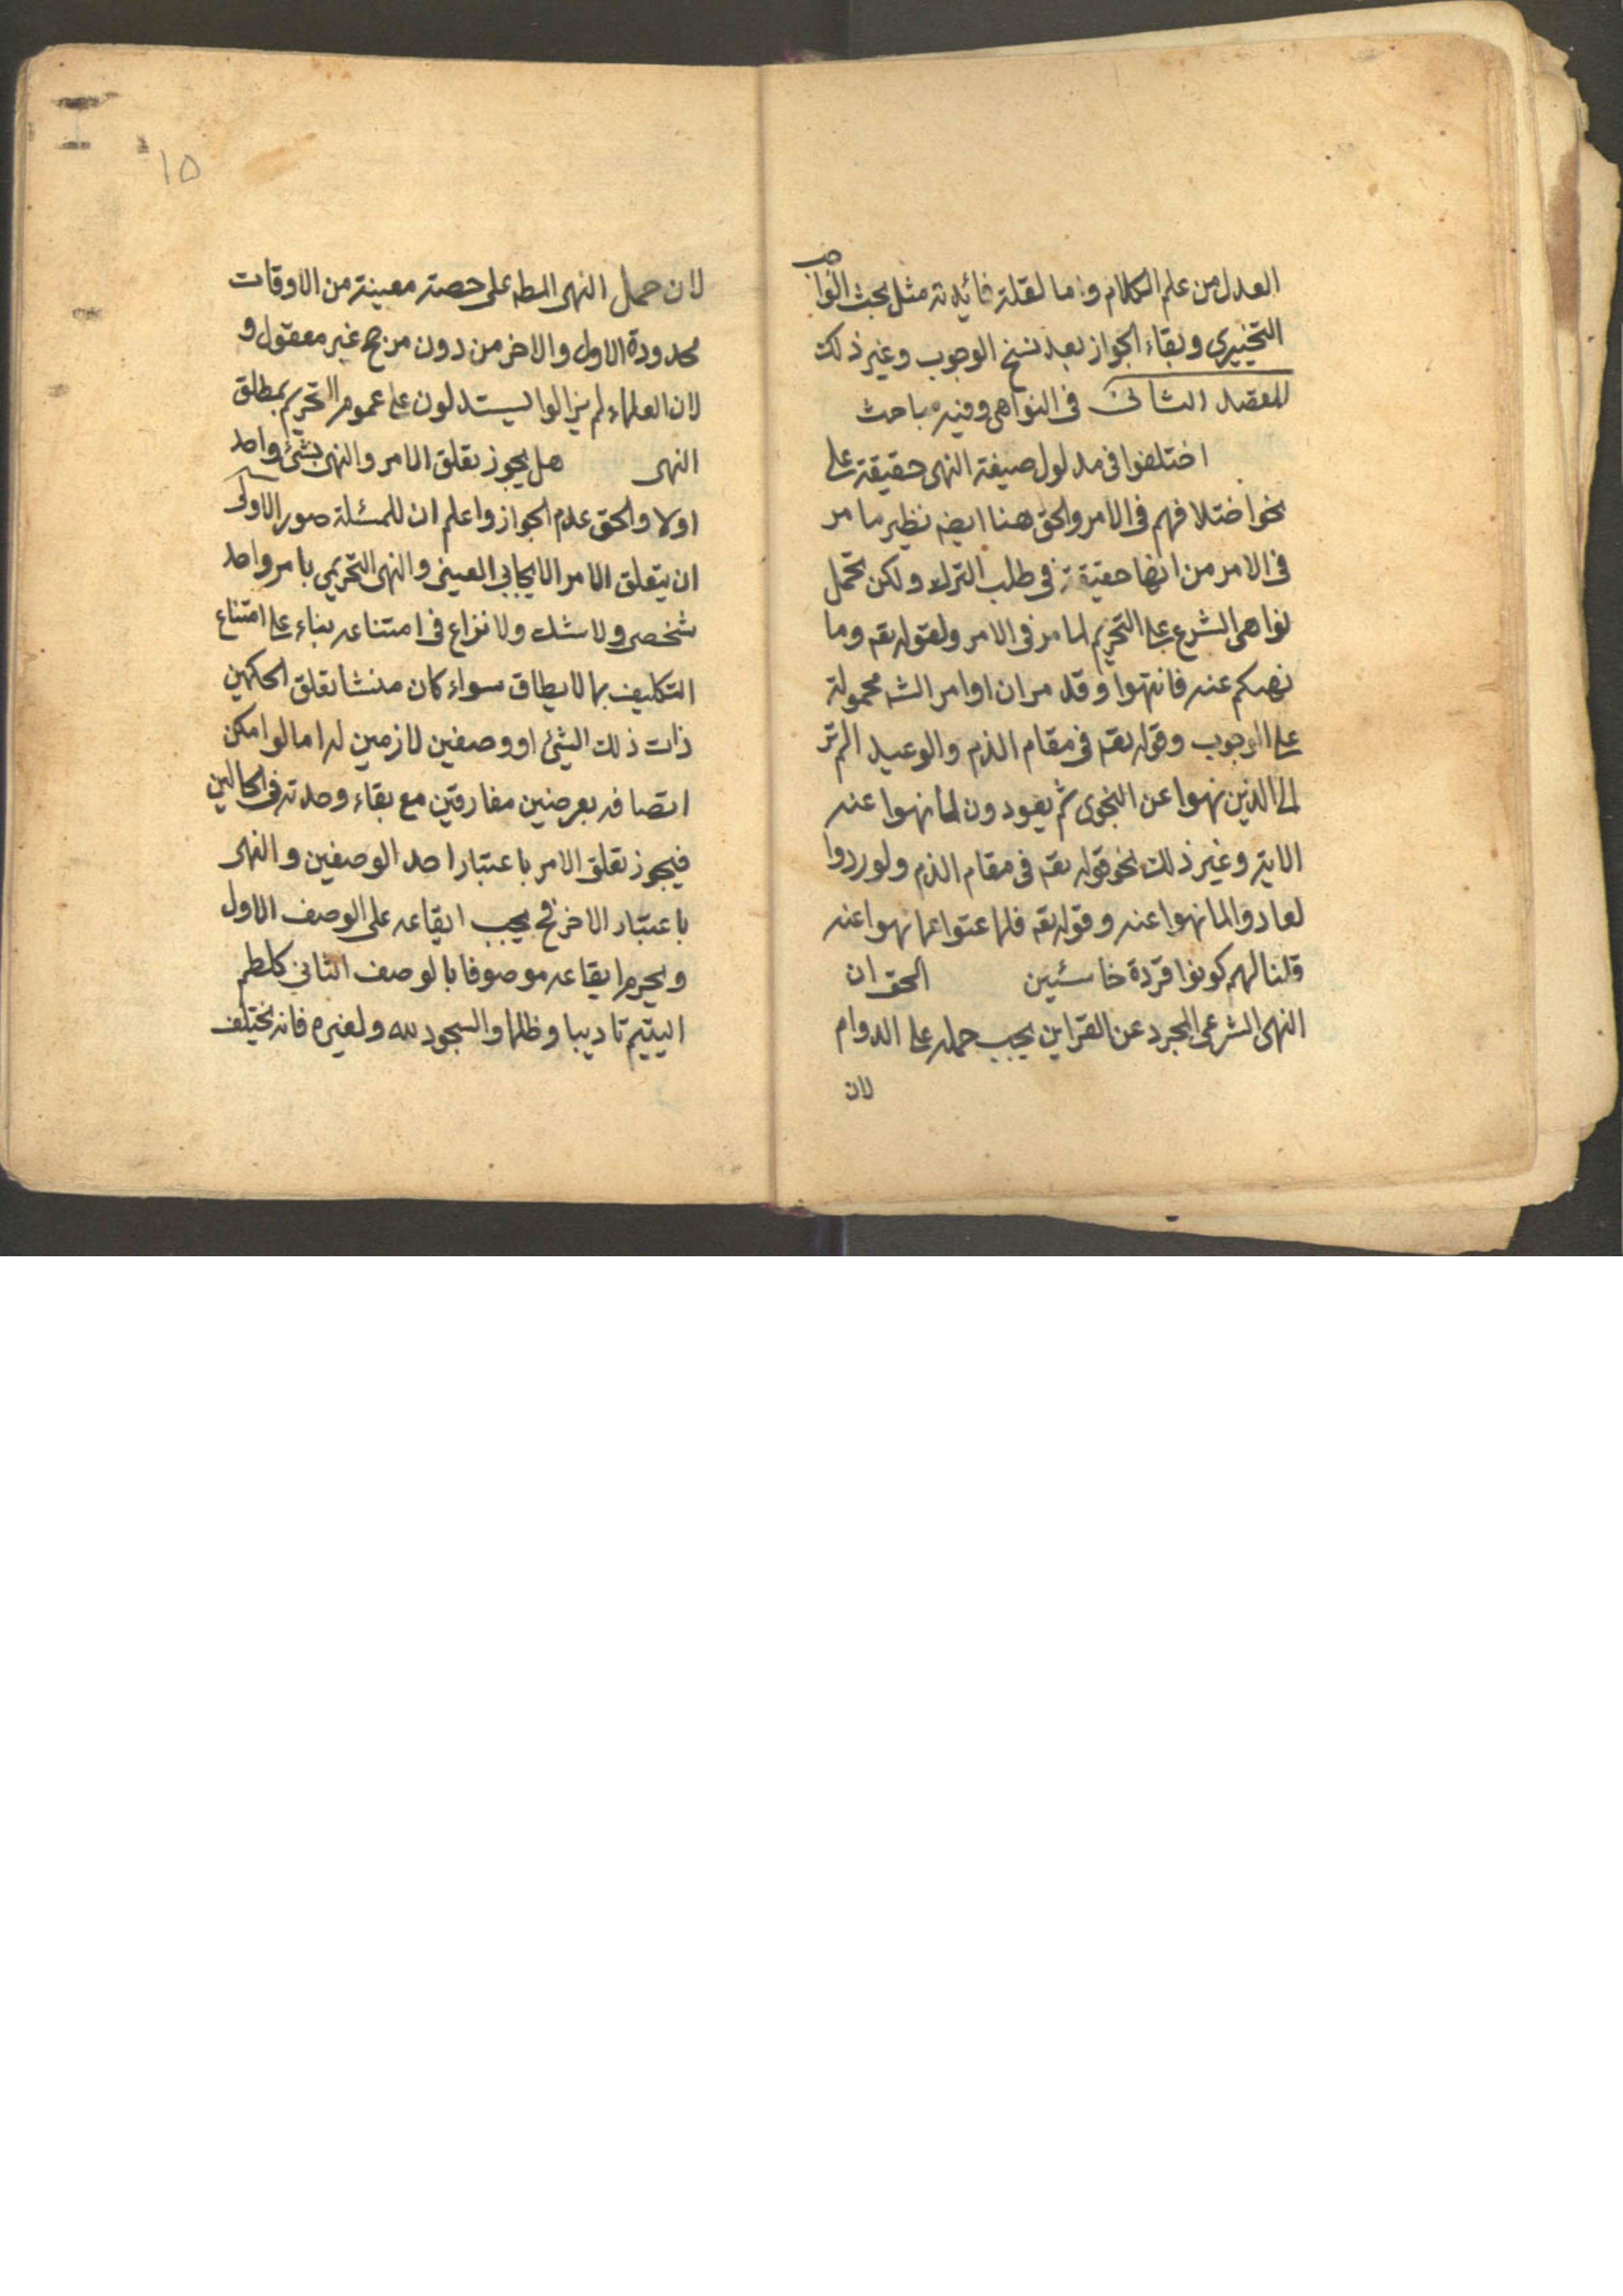 العدل من علم الكلام واما لقلة فائدته مثل بحث الواجب
التخييرى وبقاء الجواز بعد نسخ الوجوب وغير ذلك
المقصد الثانى فى النواهى وفيه مباحث
اختلفوا فى مدلول صيغة النهى حقيقة على
نحو اختلافهم فى الامر والحق هنا ايضه نظير ما مر
فى الامر من انها حقيقة فى طلب الترك ولكن تحمل
نواهى الشرع على التحريم لما مر فى الامر ولقوله تعه وما
نهيكم عنه فانتهوا وقد مر ان اوامر الشه محمولة
على الوجوب وقوله تعه فى مقام الذم والوعيد الم تر
الى الذين نهوا عن النجوى ثم يعودون لما نهوا عنه
الاية وغير ذلك نحو قوله تعه فى مقام الذم ولو ردوا
لعادوا لما نهوا عنه وقوله تعه فلما عتوا عما نهوا عنه
قلنا لهم كونوا قردة خاسئين الحق ان
النهى الشرعى المجرد عن القراين يجب حمله على الدوام
لان
١٥
لان حمل النهى المطه على حصته معينة من الاوقات
محدودة الاول والاخر من دون مرجح غير معقول و
لان العلماء لم يزالوا يستدلون على عموم التحريم بمطلق
النهى هل يجوز تعلق الامر والنهى بشئ واحد
اولا والحق عدم الجواز واعلم ان للمسئلة صور الاولى
ان يتعلق الامر الايجابي العينى والنهى التحريمي بامر واحد
شخصى ولا شك ولا نزاع فى امتناعه بناء على امتناع
التكليف بما لا يطاق سواء كان منشا تعلق الحكمين
ذات ذلك الشئ او وصفين لازمين له اما لو امكن
اتصافه بعرضين مفارقين مع بقاء وحدته فى الحالين
فيجوز تعلق الامر باعتبار احد الوصفين والنهى
باعتبار الاخر فح يجب ايقاعه على الوصف الاول
ويحرم ايقاعه موصوفا بالوصف الثانى كلطم
اليتيم تاديبا وظلما والسجود لله ولغيره فانه يختلف